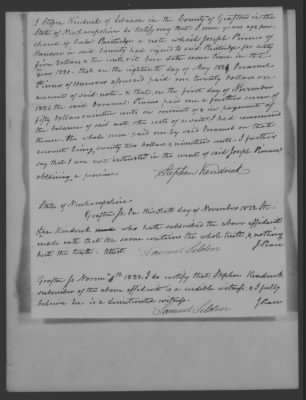 I Stephen Kendrick of Lebanon in the County of Grafton in the
State of Newhampshire do certify that I some years ago pur-
chased of Partridge a note which Joseph Pinneo of
Hanover in said County had signed to said Partridge for sixty
five dollars & ten cents, & it bore date some time in the
year 1820. that on the eighteenth day of May 1821 Doramel
Pinneo of Hanover aforesaid paid me twenty dollars on
account of said note & that on the first day of November
1821 the said Doramel Pinneo paid me a further sum of
fifty dollars seventeen cents on account of & in payment of
the balance of said note & the costs of a suit I had commenced
thereon the whole sum paid me by said Doramel on that
account being seventy two dollars & nineteen cents - I further
say that I am not interested in the event of said Joseph Pinneo's
obtaining a pension.
Stephen Kendrick
State of Newhampshire
Grafton Ss. On thirtieth day of November 1822. Ste-
phen Kendrick who hath subscribed the above affidavit
made oath that the same contains the whole truth, & nothing
but the truth - Attest
J Peace
Grafton Ss Novem 1822. I do certify that Stephen Kendrick
subscriber of the above affidavit is a credible witness & I fully
believe he is a disinterested witness.
J Peace